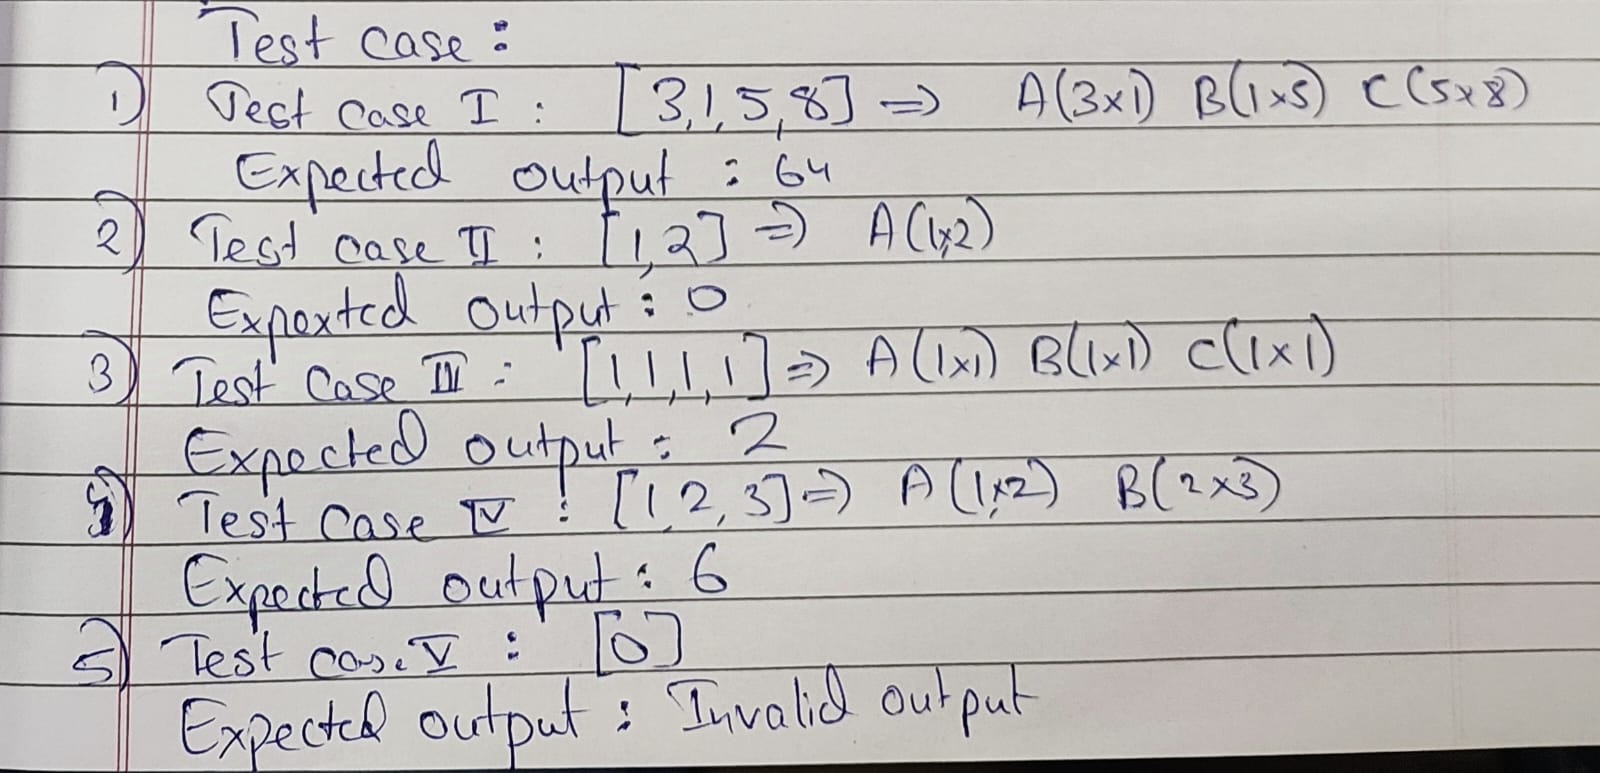 Test case :
1) Test case I : [3,1,5,8] => A(3x1) B(1x5) C(5x8)
Expected output : 64
2) Test case II : [1,2] => A(1x2)
Expexted output : 0
3) Test Case III : [1,1,1,1] => A(1x1) B(1x1) C(1x1)
Expected output : 2
4) Test Case IV : [1,2,3] => A(1x2) B(2x3)
Expected output : 6
5) Test case V : [0]
Expected output : Invalid output